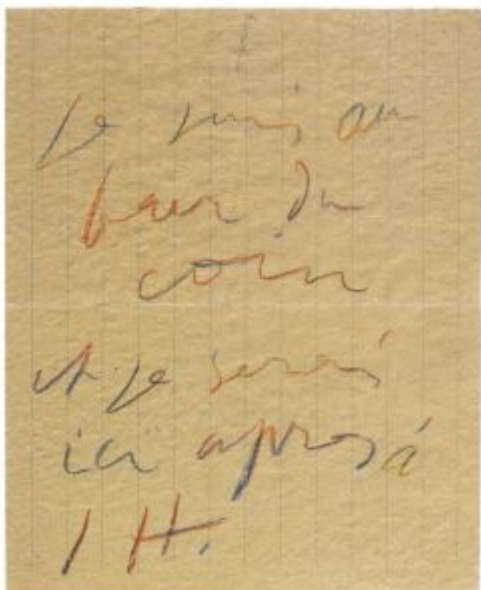 Je suis au
bar du
coin
et je serai
ici apres à
1 H.